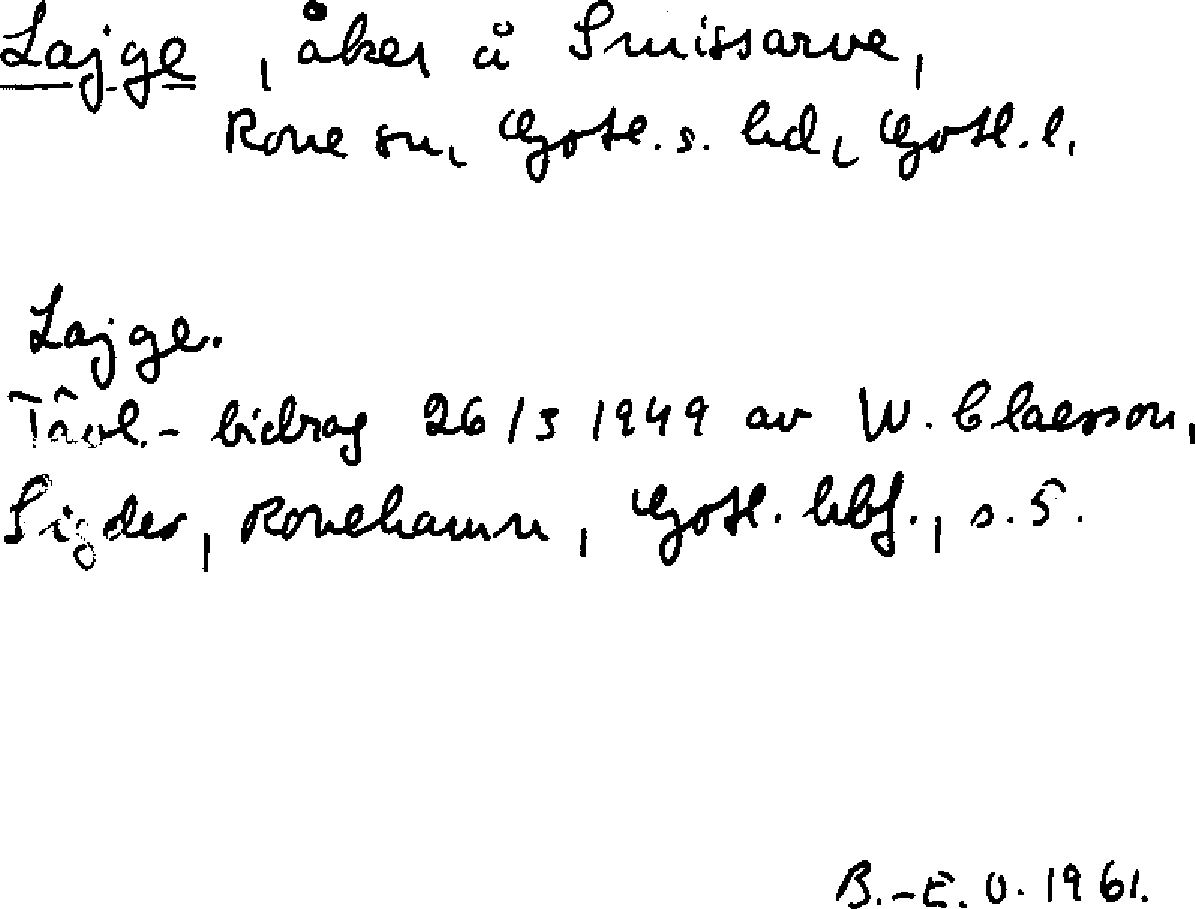 Lajge, åker å Smissarve,
Rone sn, Gotl. s. hd, Gotl. l.
Lajge.
Tävl.-bidrag 26/3 1949 av W. Claesson,
Sigdes, Ronehamn, Gotl. hbf., s. 5.
B.-E. O. 1961.